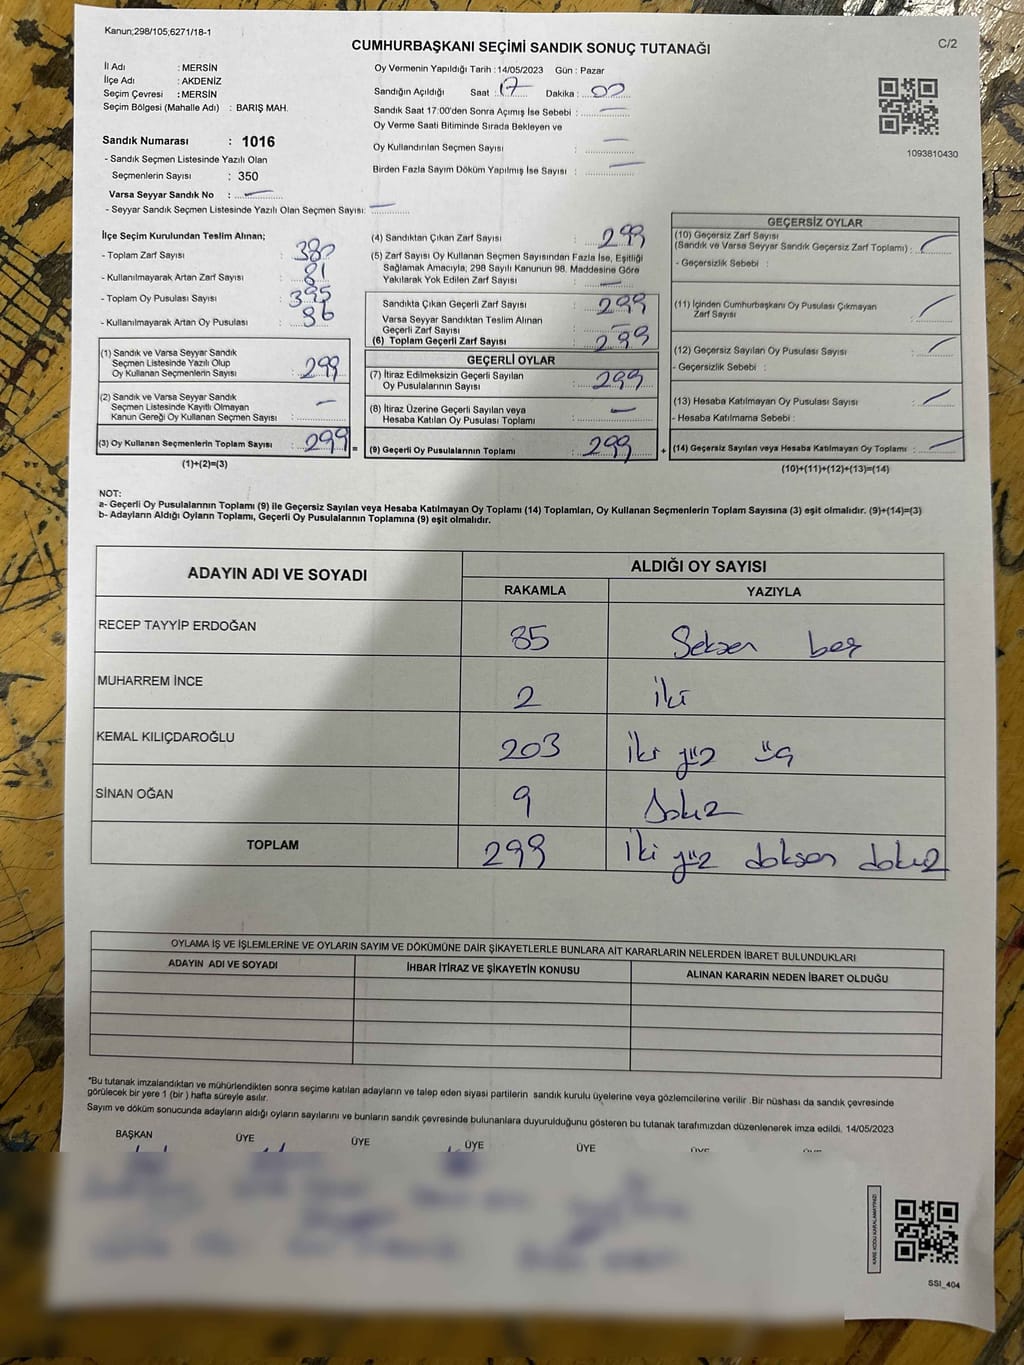 Kanun;298/105;6271/18-1
C/2
CUMHURBAŞKANI SEÇİMİ SANDIK SONUÇ TUTANAĞI
İl Adı : MERSİN
İlçe Adı : AKDENİZ
Seçim Çevresi : MERSİN
Seçim Bölgesi (Mahalle Adı) : BARIŞ MAH.
Sandık Numarası : 1016
- Sandık Seçmen Listesinde Yazılı Olan
Seçmenlerin Sayısı : 350
Varsa Seyyar Sandık No : —
- Seyyar Sandık Seçmen Listesinde Yazılı Olan Seçmen Sayısı: —
Oy Vermenin Yapıldığı Tarih : 14/05/2023 Gün : Pazar
Sandığın Açıldığı Saat : 17 Dakika : 00
Sandık Saat 17:00'den Sonra Açımış İse Sebebi : —
Oy Verme Saati Bitiminde Sırada Bekleyen ve
Oy Kullandırılan Seçmen Sayısı : —
Birden Fazla Sayım Döküm Yapılmış İse Sayısı : —
1093810430
İlçe Seçim Kurulundan Teslim Alınan;
- Toplam Zarf Sayısı : 380
- Kullanılmayarak Artan Zarf Sayısı : 81
- Toplam Oy Pusulası Sayısı : 395
- Kullanılmayarak Artan Oy Pusulası : 96
(1) Sandık ve Varsa Seyyar Sandık
Seçmen Listesinde Yazılı Olup
Oy Kullanan Seçmenlerin Sayısı : 299
(2) Sandık ve Varsa Seyyar Sandık
Seçmen Listesinde Kayıtlı Olmayan
Kanun Gereği Oy Kullanan Seçmen Sayısı : —
(3) Oy Kullanan Seçmenlerin Toplam Sayısı : 299 =
(1)+(2)=(3)
(4) Sandıktan Çıkan Zarf Sayısı : 299
(5) Zarf Sayısı Oy Kullanan Seçmen Sayısından Fazla İse, Eşitliği
Sağlamak Amacıyla, 298 Sayılı Kanunun 98. Maddesine Göre
Yakılarak Yok Edilen Zarf Sayısı : —
Sandıkta Çıkan Geçerli Zarf Sayısı : 299
Varsa Seyyar Sandıktan Teslim Alınan
Geçerli Zarf Sayısı : —
(6) Toplam Geçerli Zarf Sayısı : 299
GEÇERLİ OYLAR
(7) İtiraz Edilmeksizin Geçerli Sayılan
Oy Pusulalarının Sayısı : 299
(8) İtiraz Üzerine Geçerli Sayılan veya
Hesaba Katılan Oy Pusulası Toplamı : —
(9) Geçerli Oy Pusulalarının Toplamı : 299 +
GEÇERSİZ OYLAR
(10) Geçersiz Zarf Sayısı
(Sandık ve Varsa Seyyar Sandık Geçersiz Zarf Toplamı) : —
- Geçersizlik Sebebi :
(11) İçinden Cumhurbaşkanı Oy Pusulası Çıkmayan
Zarf Sayısı : —
(12) Geçersiz Sayılan Oy Pusulası Sayısı : —
- Geçersizlik Sebebi :
(13) Hesaba Katılmayan Oy Pusulası Sayısı : —
- Hesaba Katılmama Sebebi :
(14) Geçersiz Sayılan veya Hesaba Katılmayan Oy Toplamı : —
(10)+(11)+(12)+(13)=(14)
NOT:
a- Geçerli Oy Pusulalarının Toplamı (9) ile Geçersiz Sayılan veya Hesaba Katılmayan Oy Toplamı (14) Toplamları, Oy Kullanan Seçmenlerin Toplam Sayısına (3) eşit olmalıdır. (9)+(14)=(3)
b- Adayların Aldığı Oyların Toplamı, Geçerli Oy Pusulalarının Toplamına (9) eşit olmalıdır.
ADAYIN ADI VE SOYADI ALDIĞI OY SAYISI
RAKAMLA YAZIYLA
RECEP TAYYİP ERDOĞAN 85 Seksen beş
MUHARREM İNCE 2 iki
KEMAL KILIÇDAROĞLU 203 iki yüz üç
SİNAN OĞAN 9 Dokuz
TOPLAM 299 iki yüz doksan dokuz
OYLAMA İŞ VE İŞLEMLERİNE VE OYLARIN SAYIM VE DÖKÜMÜNE DAİR ŞİKAYETLERLE BUNLARA AİT KARARLARIN NELERDEN İBARET BULUNDUKLARI
ADAYIN ADI VE SOYADI İHBAR İTİRAZ VE ŞİKAYETİN KONUSU ALINAN KARARIN NEDEN İBARET OLDUĞU
*Bu tutanak imzalandıktan ve mühürlendikten sonra seçime katılan adayların ve talep eden siyasi partilerin sandık kurulu üyelerine veya gözlemcilerine verilir .Bir nüshası da sandık çevresinde
görülecek bir yere 1 (bir ) hafta süreyle asılır.
Sayım ve döküm sonucunda adayların aldığı oyların sayılarını ve bunların sandık çevresinde bulunanlara duyurulduğunu gösteren bu tutanak tarafımızdan düzenlenerek imza edildi. 14/05/2023
BAŞKAN ÜYE ÜYE ÜYE ÜYE
KARE KODU KARALAMAYINIZ!
SSI_404